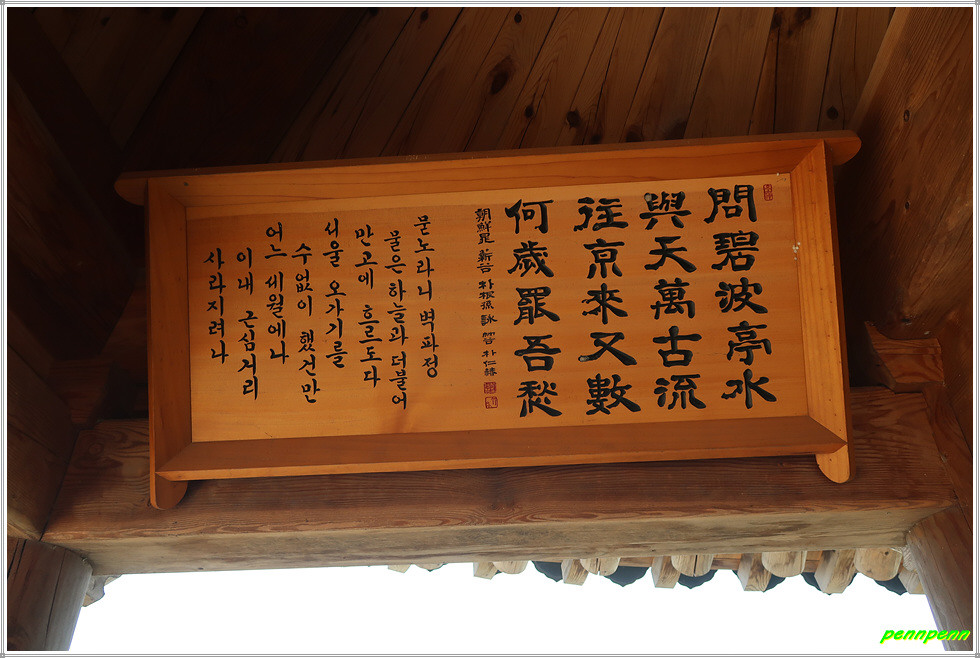 問碧波亭水
與天萬古流
往京來又數
何歲罷吾愁
묻노라니 벽파정
물은 하늘과 더불어
만고에 흐르도다
서울 오가기를
수없이 했건만
어느 세월에나
이내 근심거리
사라지려나
pennpenn